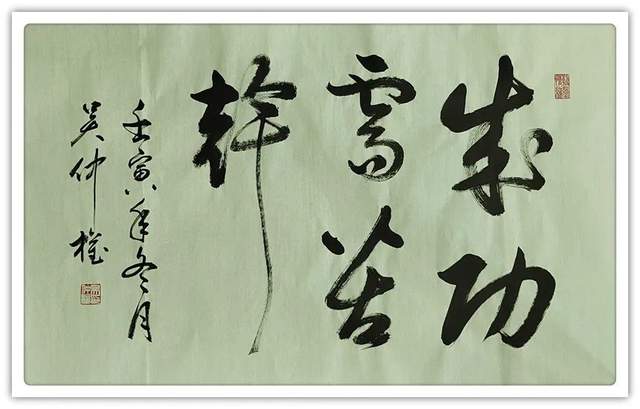 成功
需苦
幹
壬寅年冬月
吴仲权